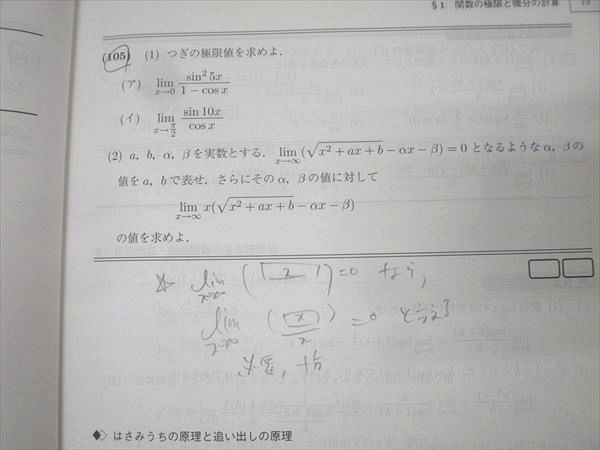 §1 関数の極限と微分の計算 19
(105) (1) つぎの極限値を求めよ.
(ア) lim x→0 sin² 5x / 1 − cos x
(イ) lim x→π/2 sin 10x / cos x
(2) a, b, α, β を実数とする. lim x→∞ (√x² + ax + b − αx − β) = 0 となるような α, β の
値を a, b で表せ. さらにその α, β の値に対して
lim x→∞ x(√x² + ax + b − αx − β)
の値を求めよ.
lim x→∞ ( x ) = 0 なら,
lim x→∞ ( x ) / x = 0
◆ はさみうちの原理と追い出しの原理